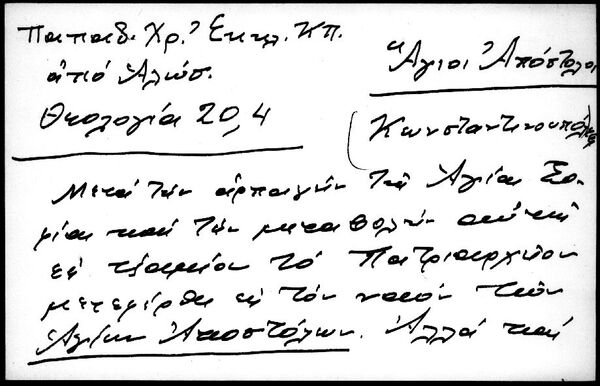 Παπαδ. Χρ. Ἐκκλ. ΚΠ.
ἀπό Ἁλώσ.
Θεολογία 20, 4
Ἅγιοι Ἀπόστολοι
(Κωνσταντινουπόλεως
Μετά τήν ἁρπαγήν τῆς Ἁγίας Σο-
φίας καί τήν μεταβολήν αὐτῆς
εἰς τζαμίον τό Πατριαρχεῖον
μετεφέρθη εἰς τόν ναόν τῶν
Ἁγίων Ἀποστόλων. Ἀλλά καί